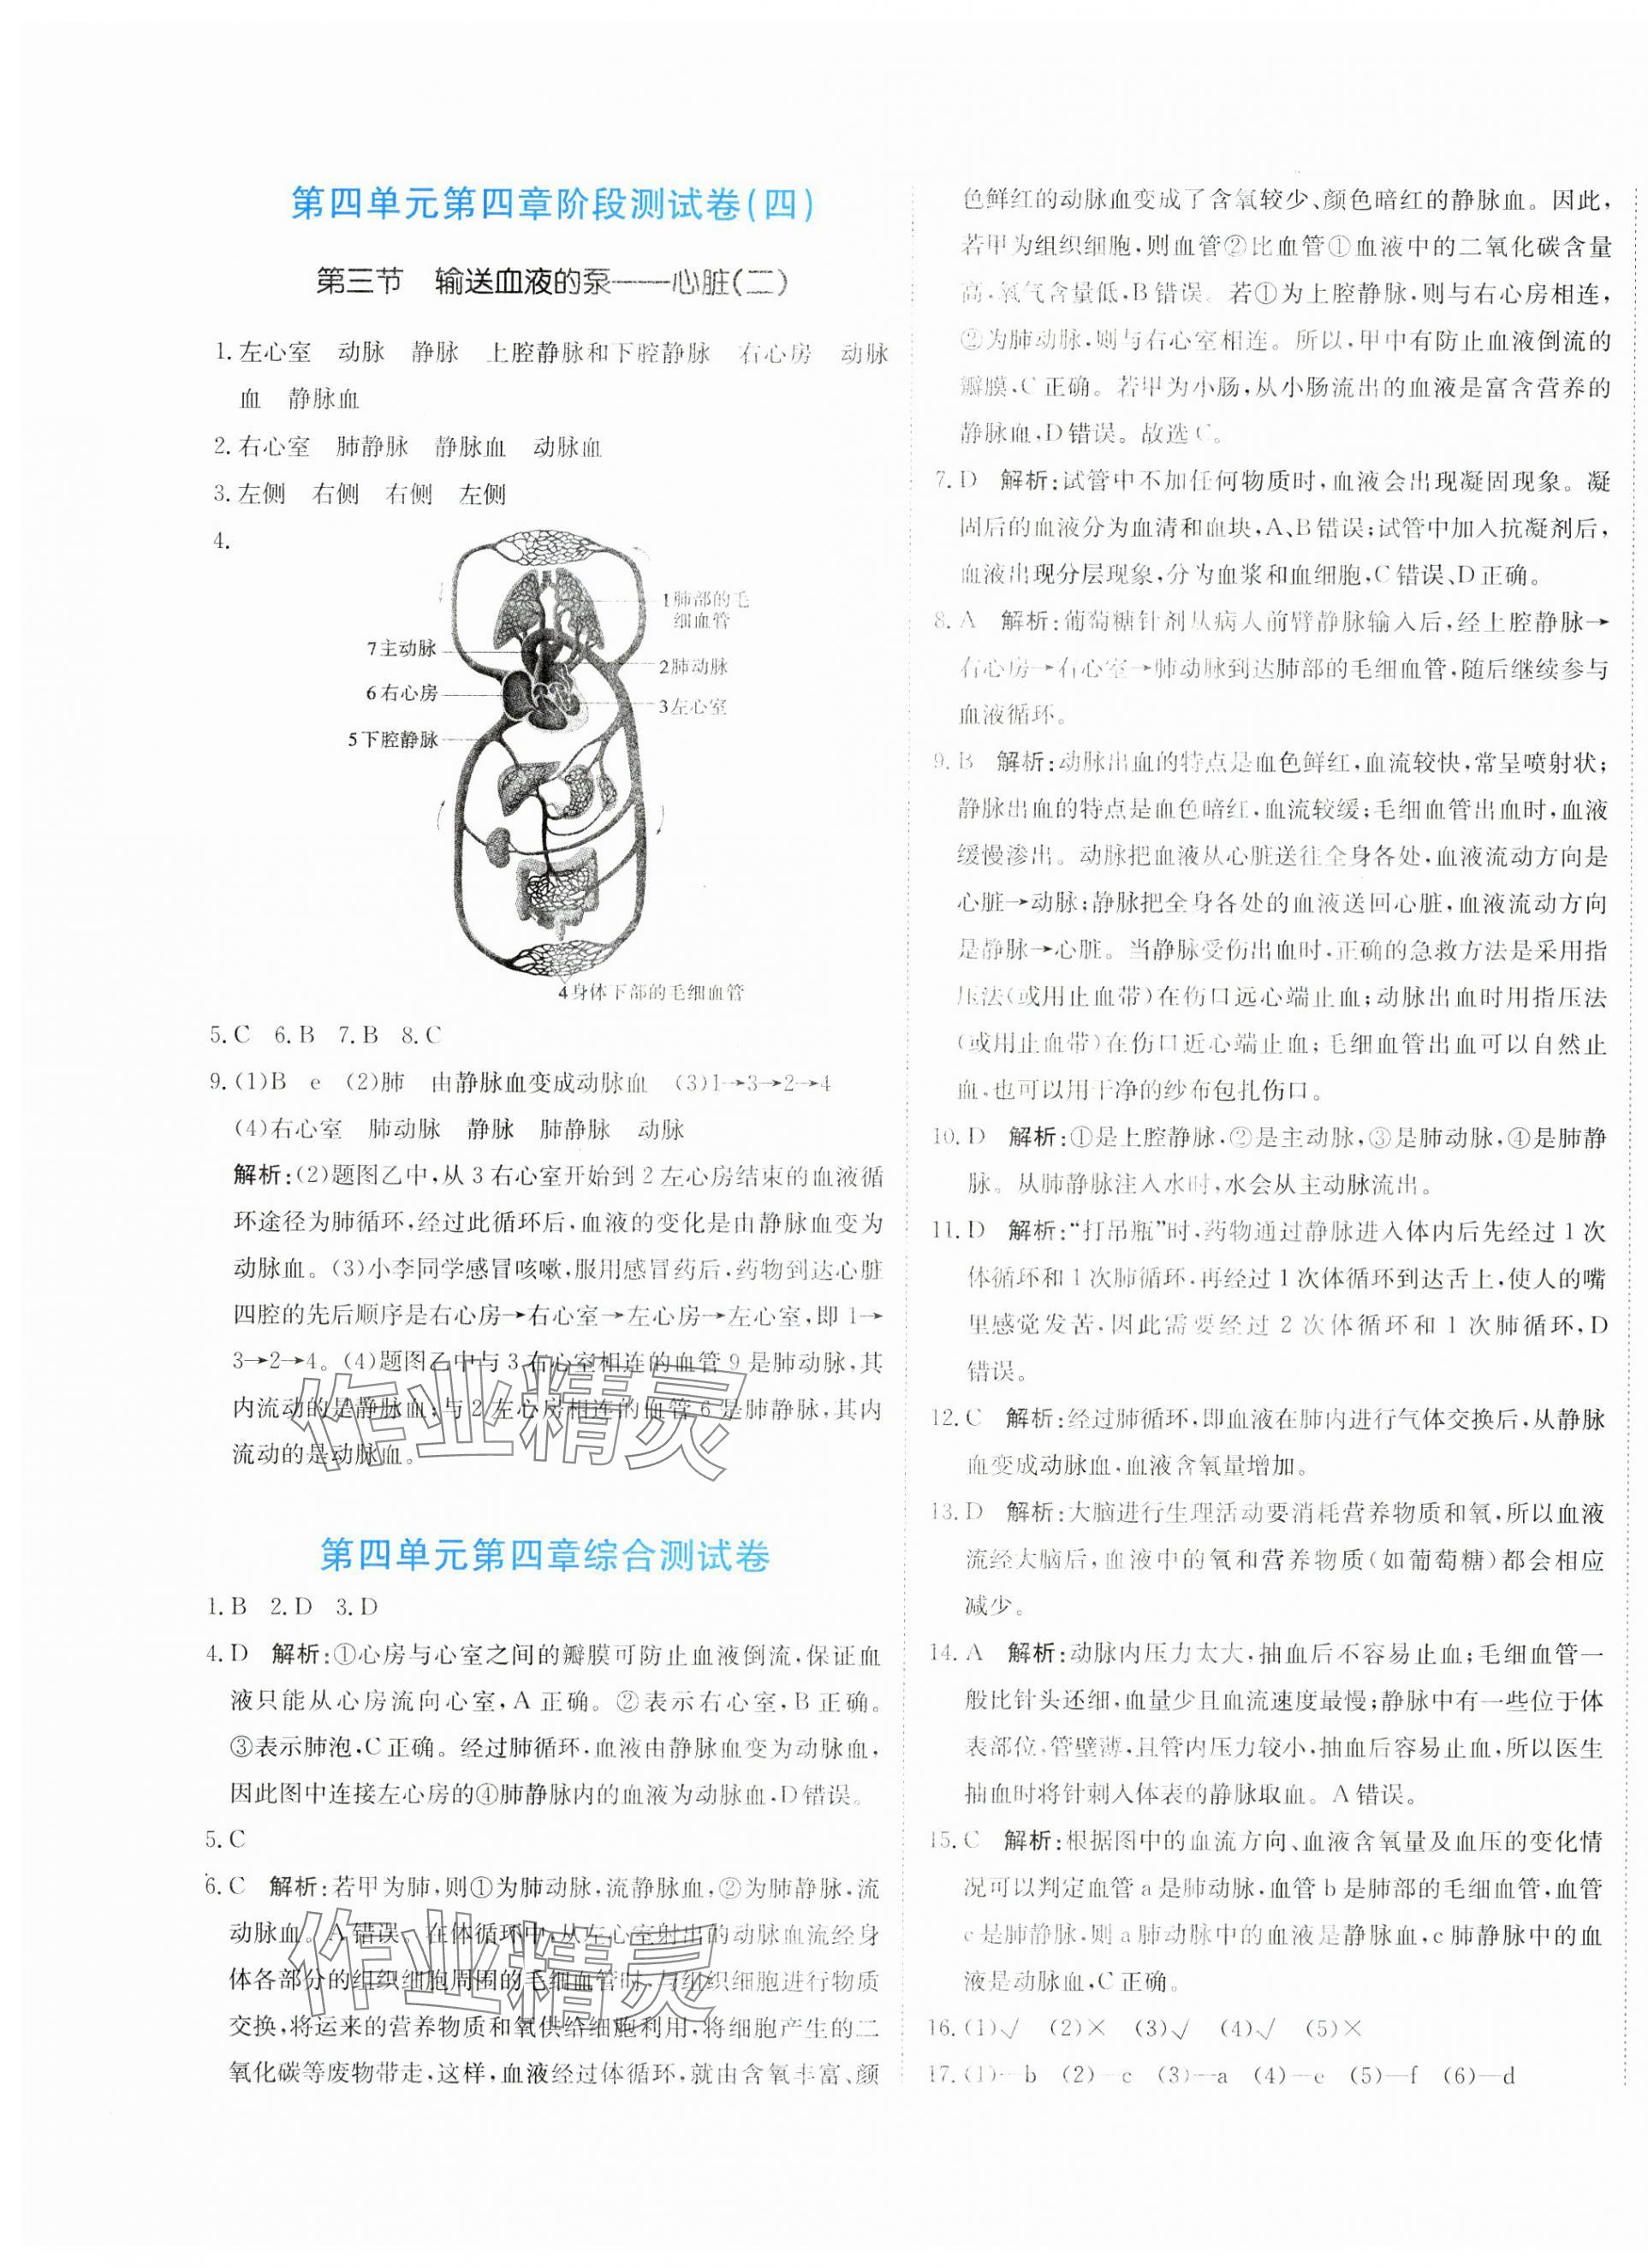 第四单元第四章阶段测试卷(四)
第三节　输送血液的泵——心脏(二)
1.左心室　动脉　静脉　上腔静脉和下腔静脉　右心房　动脉
血　静脉血
2.右心室　肺静脉　静脉血　动脉血
3.左侧　右侧　右侧　左侧
4.
1肺部的毛
细血管
7主动脉
2肺动脉
6右心房
3左心室
5下腔静脉
4身体下部的毛细血管
5.C　6.B　7.B　8.C
9.(1)B　e　(2)肺　由静脉血变成动脉血　(3)1→3→2→4
(4)右心室　肺动脉　静脉　肺静脉　动脉
解析:(2)题图乙中,从3右心室开始到2左心房结束的血液循
环途径为肺循环,经过此循环后,血液的变化是由静脉血变为
动脉血。(3)小李同学感冒咳嗽,服用感冒药后,药物到达心脏
四腔的先后顺序是右心房→右心室→左心房→左心室,即1→
3→2→4。(4)题图乙中与3右心室相连的血管9是肺动脉,其
内流动的是静脉血;与2左心房相连的血管6是肺静脉,其内
流动的是动脉血。
作业精灵
第四单元第四章综合测试卷
1.B　2.D　3.D
4.D　解析:①心房与心室之间的瓣膜可防止血液倒流,保证血
液只能从心房流向心室,A正确。②表示右心室,B正确。
③表示肺泡,C正确。经过肺循环,血液由静脉血变为动脉血,
因此图中连接左心房的④肺静脉内的血液为动脉血,D错误。
5.C
6.C　解析:若甲为肺,则①为肺动脉,流静脉血,②为肺静脉,流
动脉血。A错误。在体循环中,从左心室射出的动脉血流经身
体各部分的组织细胞周围的毛细血管时,与组织细胞进行物质
交换,将运来的营养物质和氧供给细胞利用,将细胞产生的二
氧化碳等废物带走,这样,血液经过体循环,就由含氧丰富、颜
作业精灵
色鲜红的动脉血变成了含氧较少、颜色暗红的静脉血。因此,
若甲为组织细胞,则血管②比血管①血液中的二氧化碳含量
高,氧气含量低,B错误。若①为上腔静脉,则与右心房相连,
②为肺动脉,则与右心室相连。所以,甲中有防止血液倒流的
瓣膜,C正确。若甲为小肠,从小肠流出的血液是富含营养的
静脉血,D错误。故选C。
7.D　解析:试管中不加任何物质时,血液会出现凝固现象。凝
固后的血液分为血清和血块,A、B错误;试管中加入抗凝剂后,
血液出现分层现象,分为血浆和血细胞,C错误、D正确。
8.A　解析:葡萄糖针剂从病人前臂静脉输入后,经上腔静脉→
右心房→右心室→肺动脉到达肺部的毛细血管,随后继续参与
血液循环。
9.B　解析:动脉出血的特点是血色鲜红,血流较快,常呈喷射状;
静脉出血的特点是血色暗红,血流较缓;毛细血管出血时,血液
缓慢渗出。动脉把血液从心脏送往全身各处,血液流动方向是
心脏→动脉;静脉把全身各处的血液送回心脏,血液流动方向
是静脉→心脏。当静脉受伤出血时,正确的急救方法是采用指
压法(或用止血带)在伤口远心端止血;动脉出血时用指压法
(或用止血带)在伤口近心端止血;毛细血管出血可以自然止
血,也可以用干净的纱布包扎伤口。
10.D　解析:①是上腔静脉,②是主动脉,③是肺动脉,④是肺静
脉。从肺静脉注入水时,水会从主动脉流出。
11.D　解析:“打吊瓶”时,药物通过静脉进入体内后先经过1次
体循环和1次肺循环,再经过1次体循环到达舌上,使人的嘴
里感觉发苦,因此需要经过2次体循环和1次肺循环,D
错误。
12.C　解析:经过肺循环,即血液在肺内进行气体交换后,从静脉
血变成动脉血,血液含氧量增加。
13.D　解析:大脑进行生理活动要消耗营养物质和氧,所以血液
流经大脑后,血液中的氧和营养物质(如葡萄糖)都会相应
减少。
14.A　解析:动脉内压力太大,抽血后不容易止血;毛细血管一
般比针头还细,血量少且血流速度最慢;静脉中有一些位于体
表部位,管壁薄,且管内压力较小,抽血后容易止血,所以医生
抽血时将针刺入体表的静脉取血。A错误。
15.C　解析:根据图中的血流方向、血液含氧量及血压的变化情
况可以判定血管a是肺动脉,血管b是肺部的毛细血管,血管
c是肺静脉,则a肺动脉中的血液是静脉血,c肺静脉中的血
液是动脉血,C正确。
16.(1)√　(2)×　(3)√　(4)√　(5)×
17.(1)—b　(2)—c　(3)—a　(4)—e　(5)—f　(6)—d